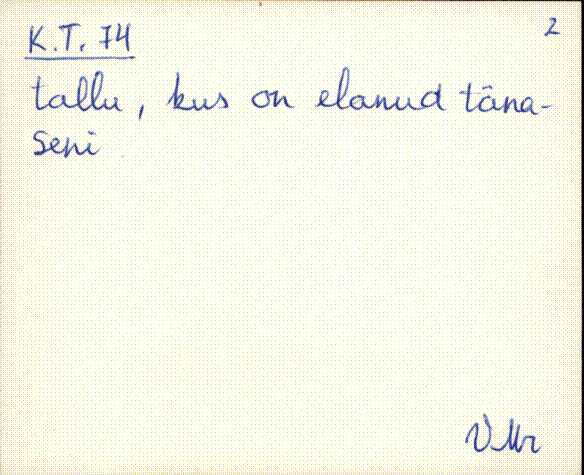 K.T. 74
2
tallu, kus on elanud täna-
seni